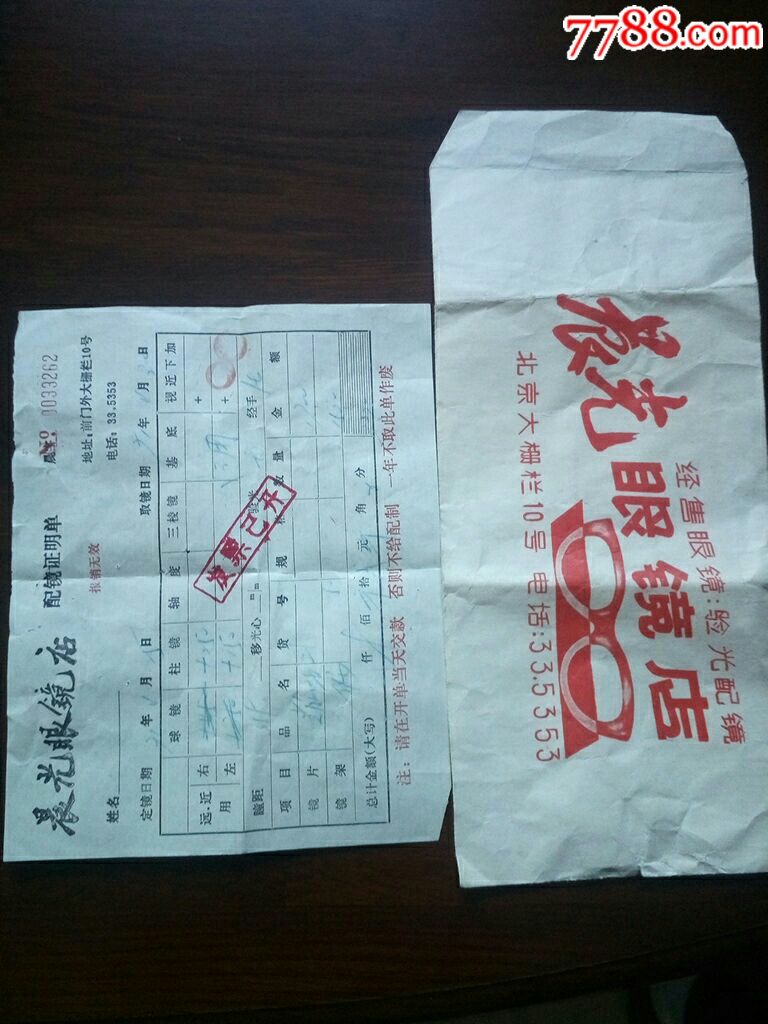 7788.com
晨光眼镜店 配镜证明单 晨 No 0033262
报销无效
地址:前门外大栅栏10号
电话:33.5353
姓名
定镜日期 年 月 日 取镜日期 年 月 日
球镜 柱镜 轴度 三棱镜 基底 视近下加
远.近用 右 +
左 +
瞳距 移光心 mm 经手
项目 品名 货号 规格 数量 金额
镜片
镜架
总计金额(大写) 仟 佰 拾 元 角 分
注:请在开单当天交款 否则不给配制 一年不取此单作废
发票已开
晨光眼镜店
经售眼镜:验光配镜
北京大栅栏10号 电话:33.5353